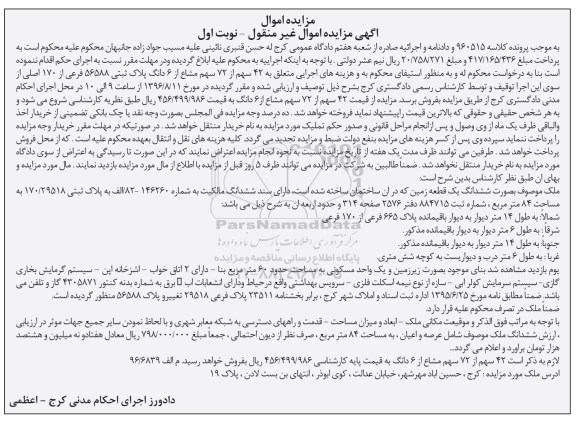 مزایده اموال
آگهی مزایده اموال غیر منقول - نوبت اول
به موجب پرونده کلاسه ۹۶۰۵۱۵ و دادنامه و اجرائیه صادره از شعبه هفتم دادگاه عمومی کرج له حسن قنبری نائینی علیه مسیب جواد زاده جانبهان محکوم علیه محکوم است به
پرداخت مبلغ ۴۱۷/۱۶۵/۴۳۶ و مبلغ ۲۰/۷۵۸/۲۷۱ ریال نیم عشر دولتی . با توجه به اینکه اجراییه به محکوم علیه ابلاغ گردیده ودر مهلت مقرر نسبت به اجرای حکم اقدام ننموده
است بنا به درخواست محکوم له و به منظور استیفای محکوم به و هزینه های اجرایی متعلق به ۴۲ سهم از ۷۲ سهم مشاع از ۶ دانگ پلاک ثبتی ۵۶۵۸۸ فرعی از ۱۷۰ اصلی از
سوی این اجرا توقیف و توسط کارشناس رسمی دادگستری کرج بشرح ذیل توصیف و ارزیابی شده و مقرر گردیده در مورخ ۱۳۹۶/۸/۱۱ از ساعت ۹ الی ۱۰ در محل اجرای احکام
مدنی دادگستری کرج از طریق مزایده بفروش برسد. مزایده از قیمت ۴۲ سهم از ۷۲ سهم مشاع از ۶ دانگ به قیمت ۴۵۶/۴۹۹/۹۸۶ ریال طبق نظریه کارشناسی شروع می شود و
به هر شخص حقیقی و حقوقی که بالاترین قیمت راپیشنهاد نماید فروخته خواهد شد . ده درصد وجه مزایده فی المجلس بصورت وجه نقد یا چک بانکی تضمینی از خریدار اخذ
والباقی ظرف یک ماه از وی وصول و پس ازانجام مراحل قانونی و صدور حکم تملیک مورد مزایده به نام خریدار منتقل خواهد شد . در صورتیکه در مهلت مقرر خریدار وجه مزایده
را پرداخت ننماید سپرده وی پس از کسر هزینه های مزایده بنفع دولت ضبط و مزایده تجدید می گردد. کلیه هزینه های نقل و انتقال بعهده محکوم علیه است . که از محل فروش
پرداخت خواهد شد . طرفین می توانند ظرف مدت یک هفته از تاریخ مزایده نسبت به نحوه انجام مزایده اعتراض نمایند که در این صورت تا رسیدگی به اعتراض از سوی دادگاه
مورد مزایده به نام خریدار منتقل نخواهد شد . ضمنا طالبین به شرکت در مزایده می توانند ظرف ۵ روز قبل از مزایده با اطلاع از مال مورد مزایده بازدید نمایند . مال مورد مزایده و
بهای ان طبق نظر کارشناس بدین شرح است:
ملک موصوف بصورت ششدانگ یک قطعه زمین که در ان ساختمان ساخته شده است، دارای سند ششدانگ مالکیت به شماره ۱۴۶۲۶۰ -۸۲الف به پلاک ثبتی ۱۷۰/۲۹۵۱۸ به
مساحت ۸۴ متر مربع ، شماره ثبت ۸۸۴۷۱۵ دفتر ۲۵۷۶ صفحه ۳۱۴ و حدود اربعه ان به شرح ذیل می باشد:
شمالا: به طول ۱۴ متر دیوار به دیوار باقیمانده پلاک ۶۶۵ فرعی از ۱۷۰ فرعی
شرقا: به طول ۶ متر دیوار به دیوار باقیمانده مذکور.
جنوبا: به طول ۱۴ متر دیوار به دیوار باقیمانده مذکور.
غربا : به طول ۶ متر درب و دیواریست به کوچه شش متری.
یوم بازدید مشاهده شد بنای موجود بصورت زیرزمین و یک واحد مسکونی به مساحت حدود ۶۰ متر مربع بنا - دارای ۲ اتاق خواب - اشپزخانه اپن - سیستم گرمایش بخاری
گازی- سیستم سرمایش کولر ابی - سازه از نوع نیمه اسکلت فلزی - سرویس بهداشتی واقع درحیاط ودارای انشعابات اب برق به شماره بدنه کنتور ۴۳۰۵۸۷۱ گاز و تلفن می
باشد. ضمنا مطابق نامه مورخ ۱۳۹۵/۶/۲۵ اداره ثبت اسناد و املاک شهر کرج ، برابر بخشنامه ۲۳۵۱۱ پلاک فرعی ۲۹۵۱۸ تغییرو پلاک ۵۶۵۸۸ منظور گردیده است.
ضمنا ملک در تصرف محکوم علیه قرار دارد.
با توجه به مراتب فوق الذکر و موقعیت مکانی ملک - ابعاد و میزان مساحت - قدمت و راههای دسترسی به شبکه معابر شهری و با لحاظ نمودن سایر جمیع جهات موثر در ارزیابی
، ارزش ششدانگ ملک موصوف شامل عرصه و اعیان ، به مساحت ۸۴ متر مربع ، صرف نظر از دیون احتمالی ، جمعا مبلغ ۷۹۸/۰۰۰/۰۰۰ ریال معادل هفتادو نه میلیون و هشتصد
هزار تومان براورد و اعلام می گردد..
لازم به ذکر است ۴۲ سهم از ۷۲ سهم مشاع از ۶ دانگ به قیمت پایه کارشناسی ۴۵۶/۴۹۹/۹۸۶ ریال بفروش خواهد رسید. م الف ۹۶/۶۸۳۹
ادرس ملک مورد مزایده : کرج ، حسین اباد مهرشهر، خیابان عدالت ، کوی ابوذر ، انتهای بن بست لادن ، پلاک ۱۹
دادورز اجرای احکام مدنی کرج - اعظمی